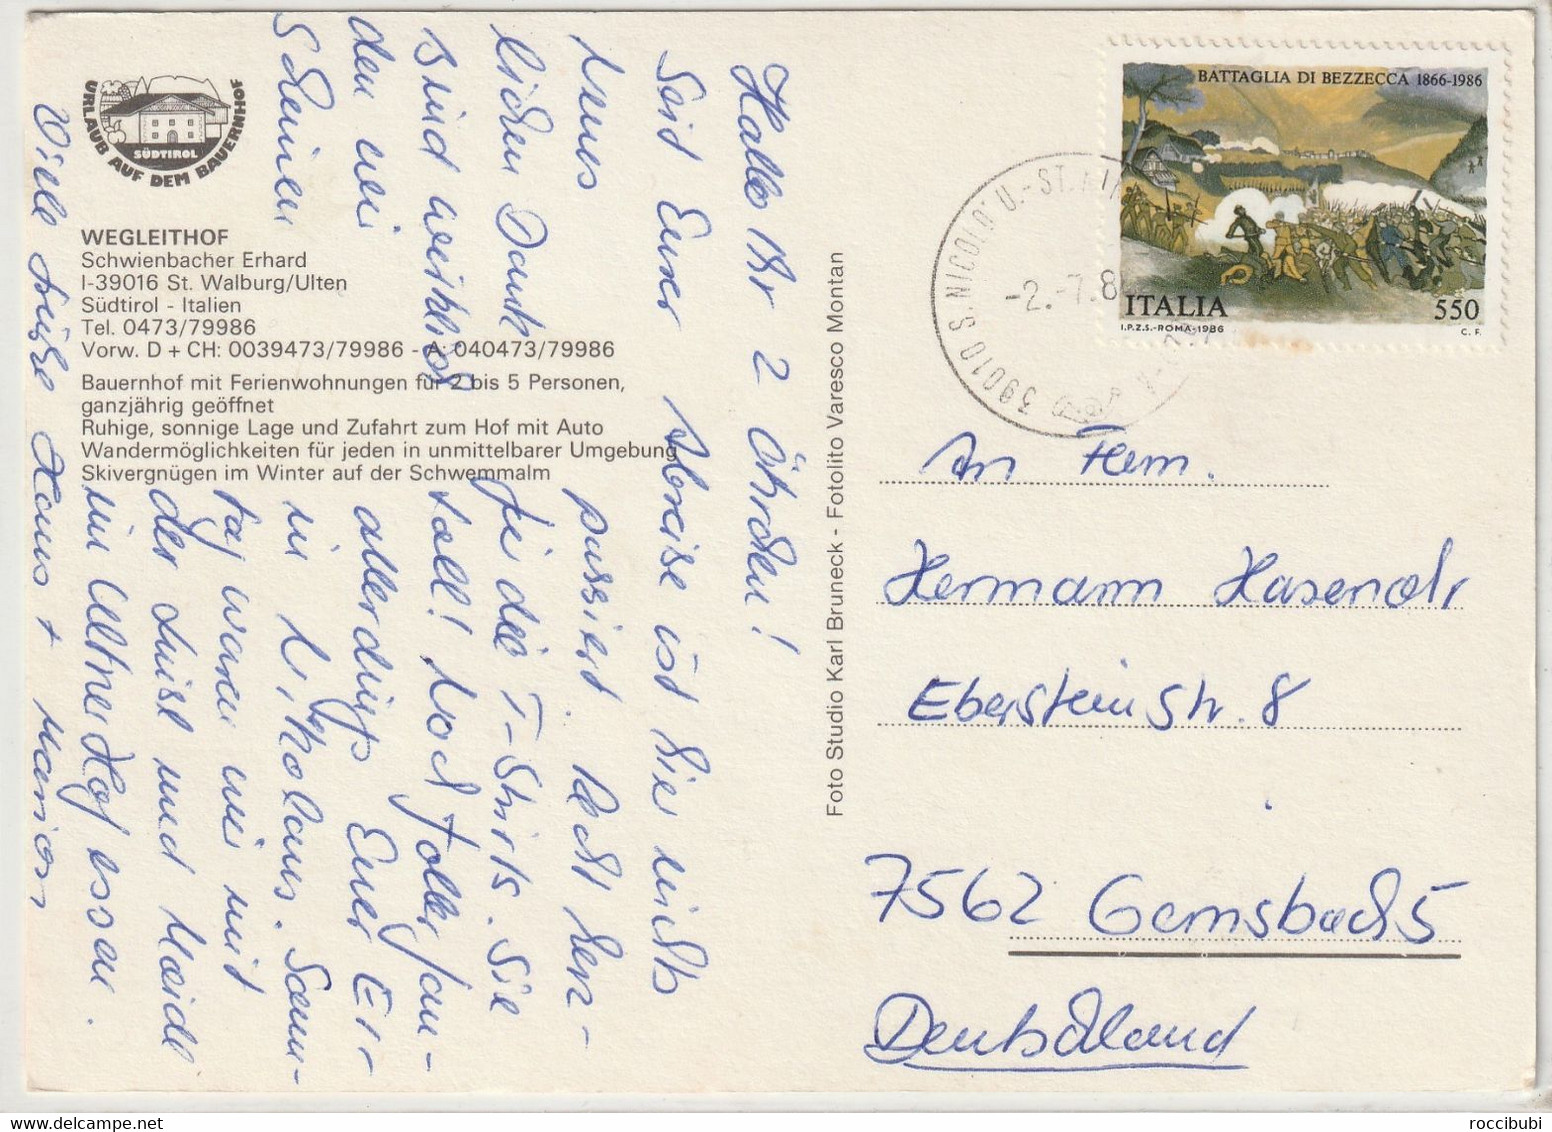 URLAUB AUF DEM BAUERNHOF
SÜDTIROL
WEGLEITHOF
Schwienbacher Erhard
I-39016 St. Walburg/Ulten
Südtirol - Italien
Tel. 0473/79986
Vorw. D + CH: 0039473/79986 - A: 040473/79986
Bauernhof mit Ferienwohnungen für 2 bis 5 Personen,
ganzjährig geöffnet
Ruhige, sonnige Lage und Zufahrt zum Hof mit Auto
Wandermöglichkeiten für jeden in unmittelbarer Umgebung
Skivergnügen im Winter auf der Schwemmalm
Hallo Ihr 2 Ötschen!
Seid Eurer Abreise ist hier nichts
neues passiert. Recht herz-
lichen Dank für die T-Shirts. Sie
sind wirklich toll! Noch toller fan-
den wir allerdings Euer
Scheinen in Nikolaus. Sams-
tag waren wir mit
der Luise und Heidi
im Ultner Hof essen.
Viele Grüße Hans + Marion
Foto Studio Karl Bruneck - Fotolito Varesco Montan
BATTAGLIA DI BEZZECCA 1866-1986
ITALIA 550
I.P.Z.S.-ROMA-1986 C. F.
39010 S. NICOLO' U.-ST.
-2.-7.8
An Herrn.
Hermann Hasenohr
Ebersteinstr. 8
7562 Gernsbach 5
Deutschland
roccibubi